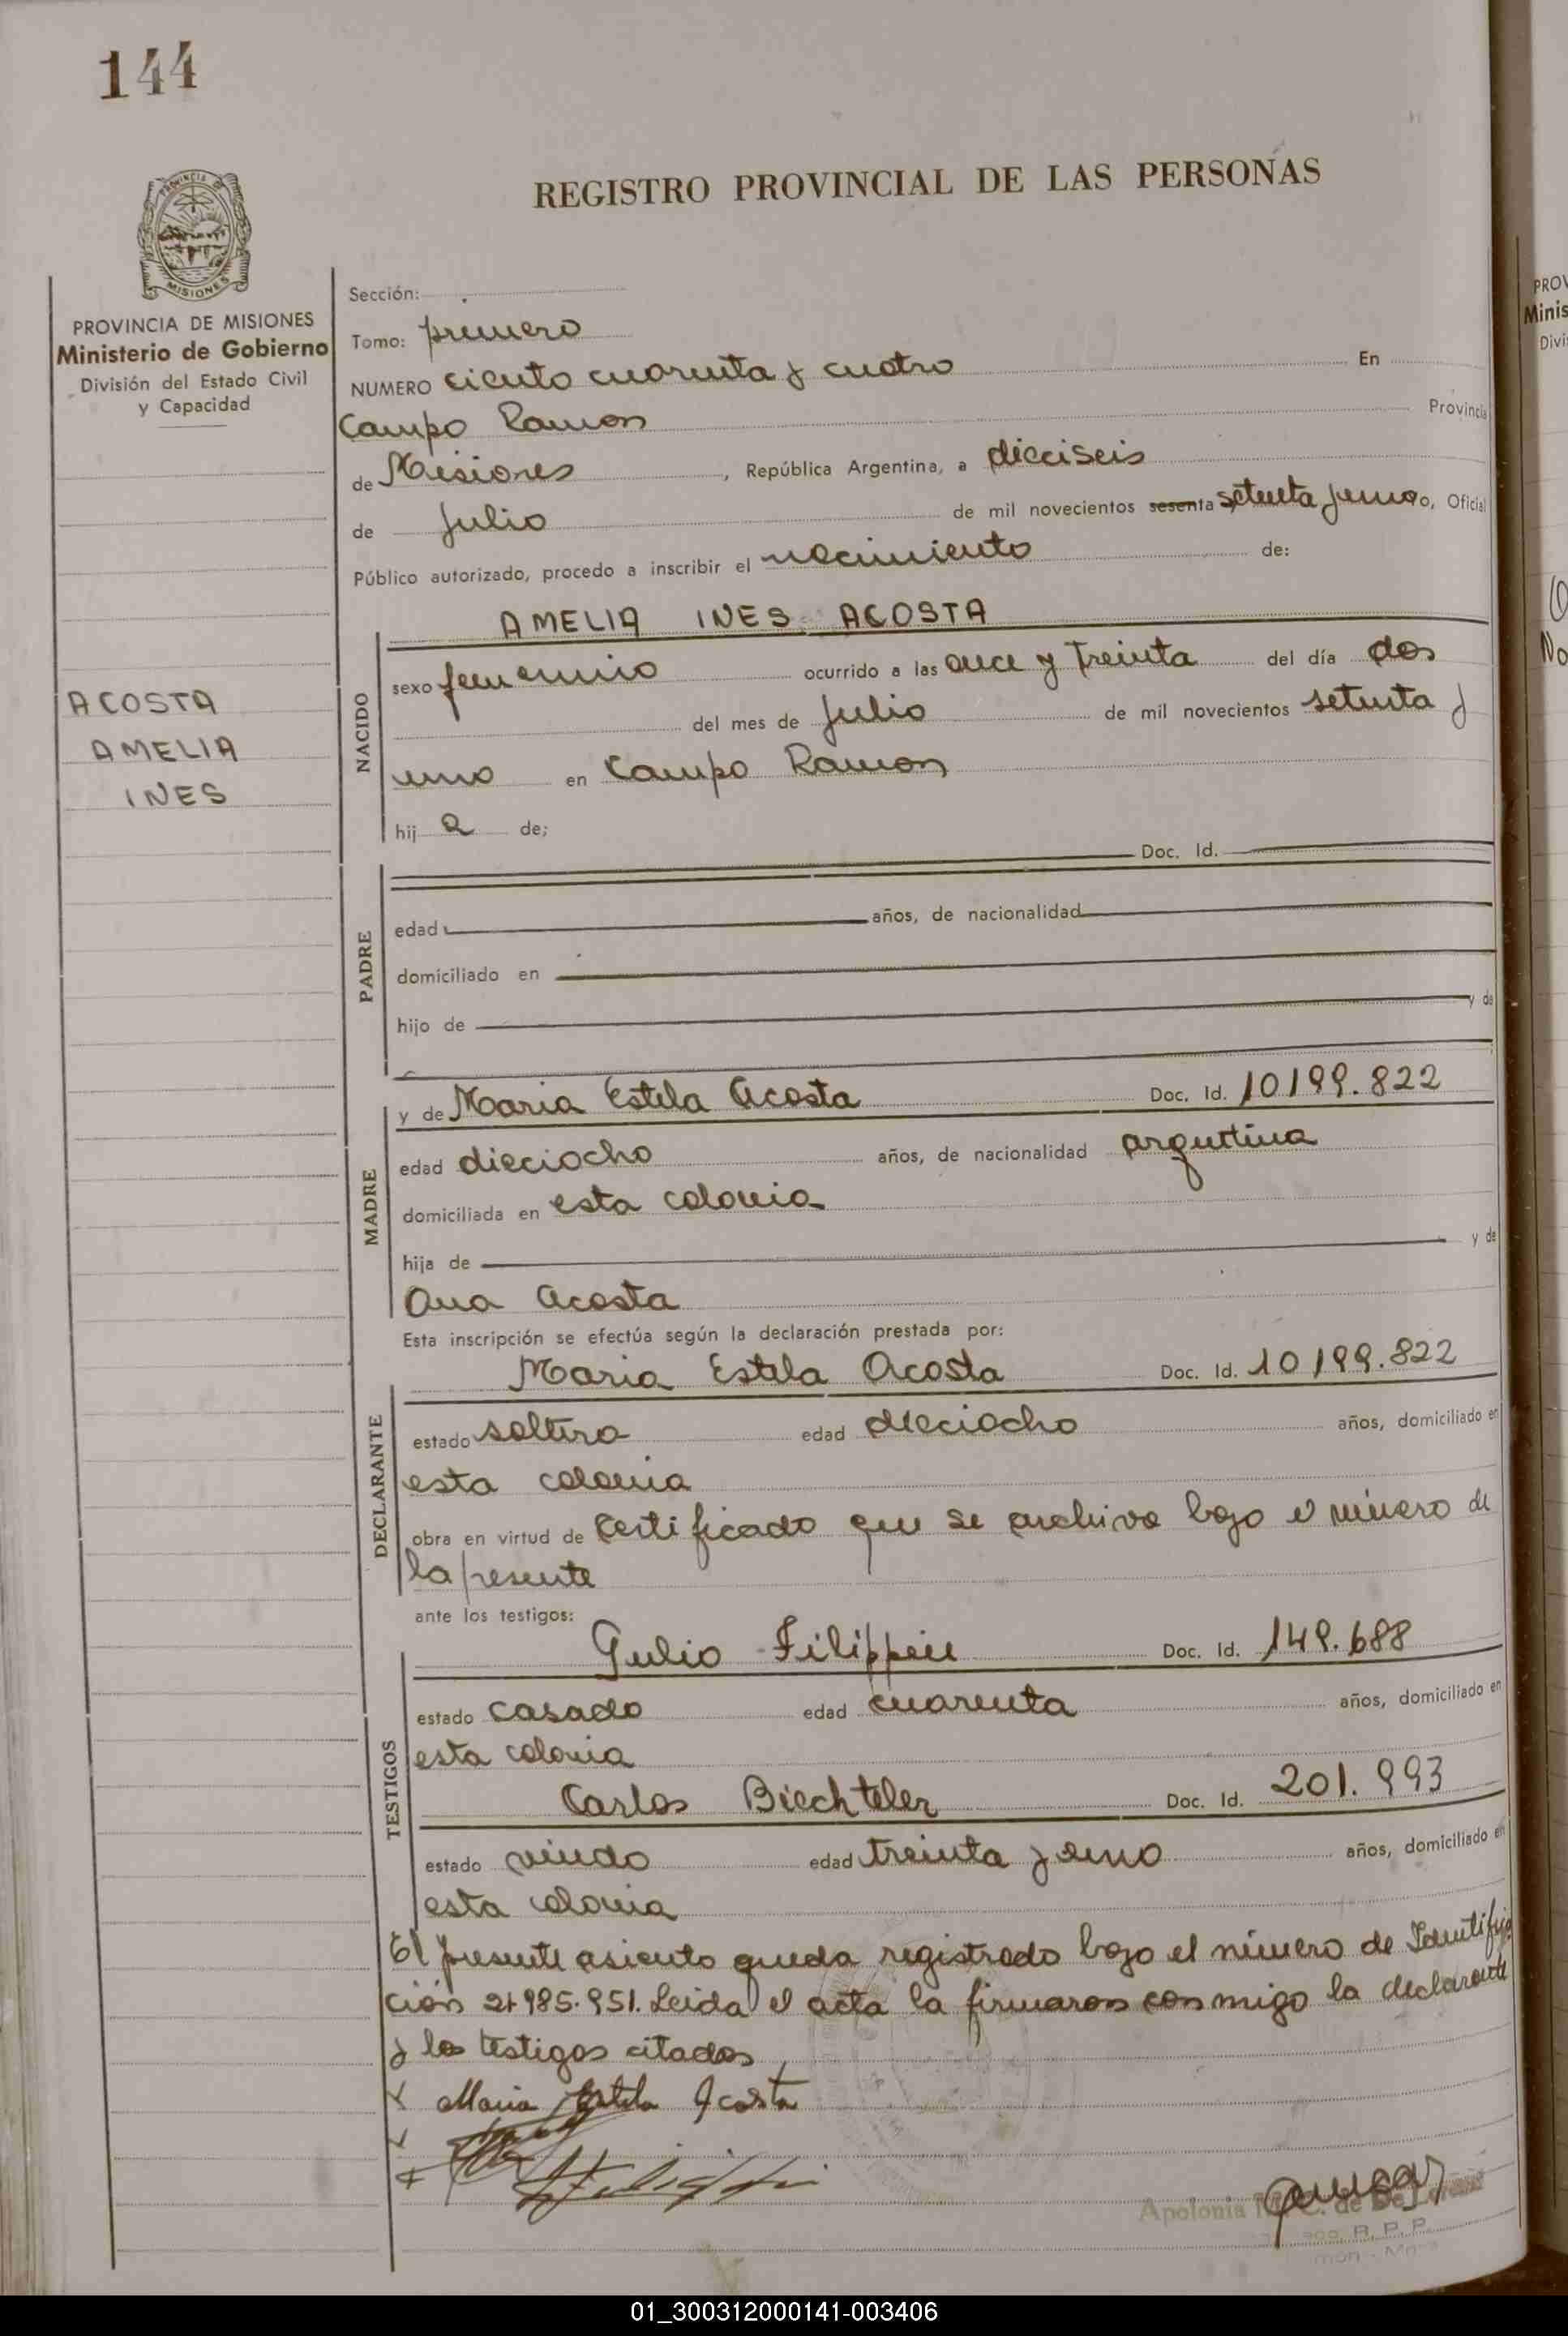 144
PROVINCIA DE
MISIONES
REGISTRO PROVINCIAL DE LAS PERSONAS
PROVINCIA DE MISIONES
Ministerio de Gobierno
División del Estado Civil
y Capacidad
ACOSTA
AMELIA
INES
Sección:
Tomo: primero
NUMERO ciento cuarenta y cuatro En
Campo Ramon Provincia
de Misiones, República Argentina, a dieciseis
de Julio de mil novecientos sesenta setenta y uno, Oficial
Público autorizado, procedo a inscribir el nacimiento de:
AMELIA INES ACOSTA
NACIDO
sexo femenino ocurrido a las once y treinta del día dos
del mes de Julio de mil novecientos setenta y
uno en Campo Ramon
hij a de;
Doc. Id.
PADRE
edad años, de nacionalidad
domiciliado en
hijo de y de
MADRE
y de Maria Estela Acosta Doc. Id. 10199.822
edad dieciocho años, de nacionalidad argentina
domiciliada en esta colonia
hija de y de
Ana Acosta
Esta inscripción se efectúa según la declaración prestada por:
Maria Estela Acosta Doc. Id. 10199.822
DECLARANTE
estado soltera edad dieciocho años, domiciliado en
esta colonia
obra en virtud de certificado que se archiva bajo el número de
la presente
ante los testigos:
Julio Filippin Doc. Id. 149.688
TESTIGOS
estado casado edad cuarenta años, domiciliado en
esta colonia
Carlos Biechteler Doc. Id. 201.993
estado viudo edad treinta y uno años, domiciliado en
esta colonia
El presente asiento queda registrado bajo el número de Identifica
ción 21.985.951. Leida el acta la firmaron conmigo la declarante
y los testigos citados
Maria Estela Acosta
Apolonia M. C. de De
R. P. P.
PROV
Minis
Divi
01_300312000141-003406